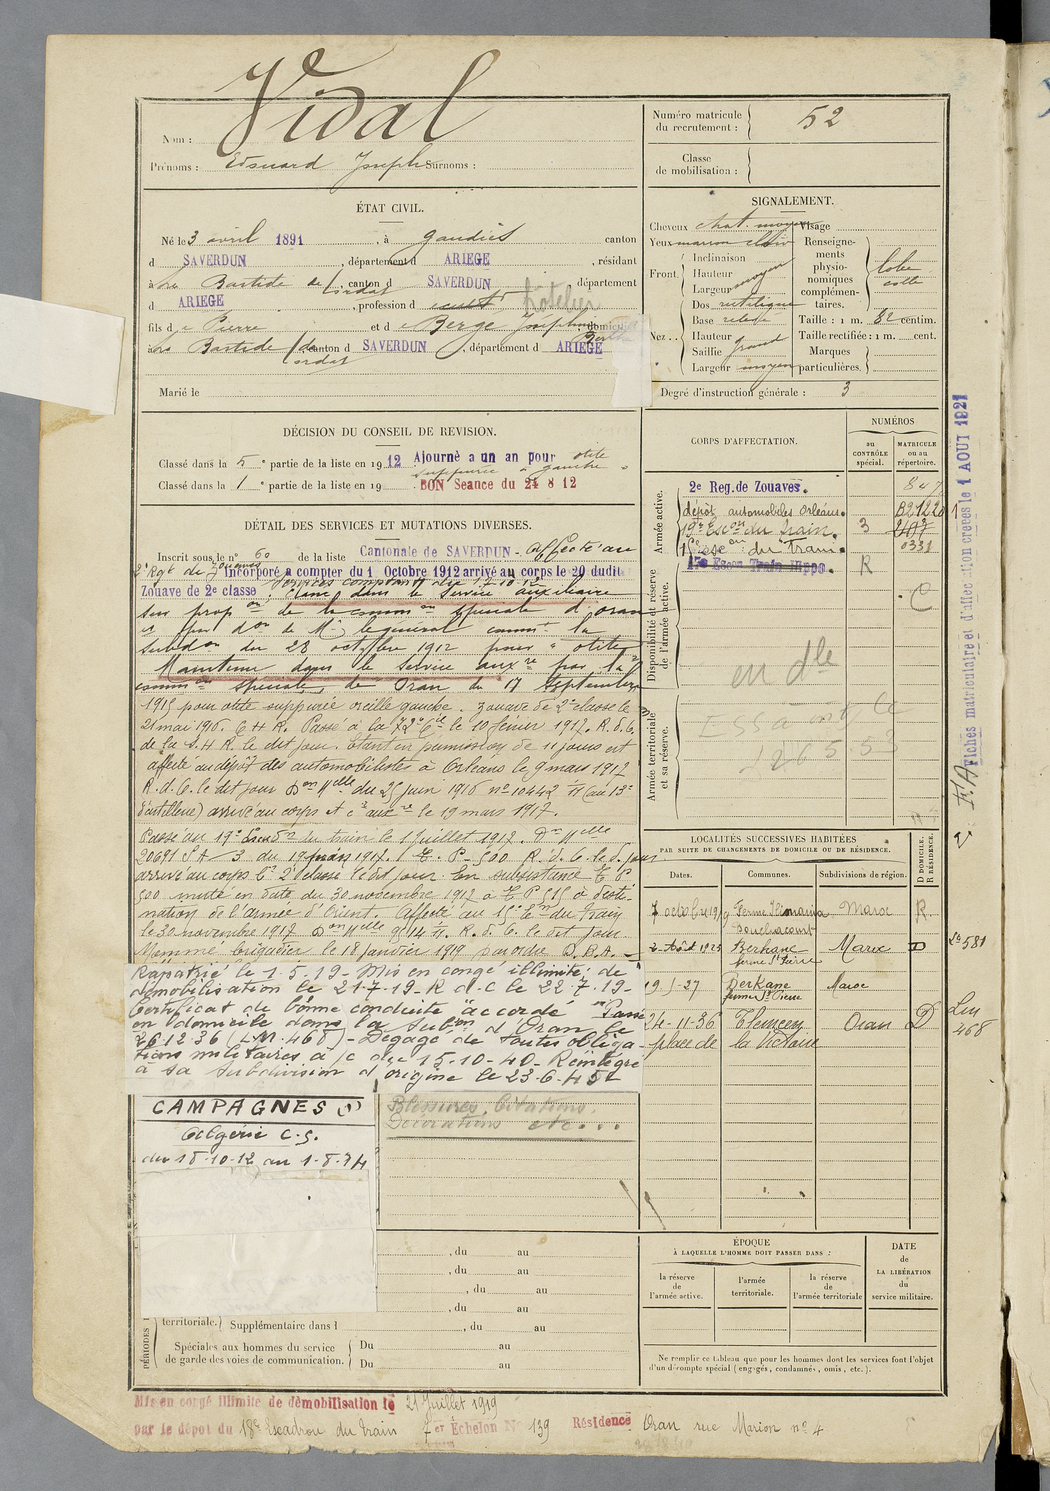 Vidal
Nom :
Prénoms : Edouard Joseph Surnoms :
Numéro matricule
du recrutement : 52
Classe
de mobilisation :
ÉTAT CIVIL.
Né le 3 avril 1891, à Gaudiès canton
d SAVERDUN, département d ARIEGE, résidant
à La Bastide de Lordat, canton d SAVERDUN département
d ARIEGE, profession d hôtelier
fils de Pierre et de Bergé Joséphine Berthe domiciliés
à La Bastide de Lordat canton d SAVERDUN, département d ARIEGE
Marié le
SIGNALEMENT.
Cheveux chat. moyen
Yeux marron clair
Front
Inclinaison
Hauteur
Largeur moyen
Nez
Dos rectiligne
Base relevé
Hauteur
Saillie grand
Largeur moyen
Visage
Renseigne-
ments
physio-
nomiques
complémen-
taires. lobe
collé
Taille : 1 m. 82 centim.
Taille rectifiée : 1 m. cent.
Marques
particulières.
Degré d'instruction générale : 3
DÉCISION DU CONSEIL DE REVISION.
Classé dans la 5e partie de la liste en 1912 Ajourné a un an pour otite
suppurée à gauche
Classé dans la 1e partie de la liste en 19 BON Seance du 24 8 12
DÉTAIL DES SERVICES ET MUTATIONS DIVERSES.
Inscrit sous le n° 60 de la liste Cantonale de SAVERDUN - Affecté au
2e Rgt de Zouaves Incorporé a compter du 1 Octobre 1912 arrivé au corps le 20 dudit
Zouave de 2e classe. Services comptant du 17.10.12
Classé dans le Service auxiliaire
sur propon de la common spéciale d'Oran
et par don de Mr le général commt la
subdon du 28 octobre 1912 pour "otite"
Maintenu dans le service auxre par la
common spéciale de Oran du 17 Septembre
1915 pour otite suppurée oreille gauche. Zouave de 2e classe le
21 mai 1916. C H R. Passé à la 72e Cie le 10 février 1917. R. d. C.
de la S. H R. le dit jour. Etant en permission de 11 jours est
affecté au dépôt des automobilistes à Orléans le 9 mars 1917
R. d. C. le dit jour Don Mlle du 25 juin 1916 no 10442 (au 13e
d'artillerie) arrivé au corps et c 2 aux re le 19 mars 1917.
Passé au 19e Escon du train le 1 Juillet 1917. Don Mlle
20691 SA/3 du 19 1917. E. P- 500 R. d. C. le d. jour
arrivé au corps Cr 2e classe le dit jour. En subsistance E P
500 muté en date du 30 novembre 1917 à E P 515 à desti-
nation de l'armée d'Orient. Affecté au 15e Eon du Train
le 30 novembre 1917 Don Mlle R. d. C. le dit jour
Nommé brigadier le 18 Janvier 1919 par ordre D.B.A.
Rapatrié le 1.5.19 - Mis en congé illimité de
démobilisation le 21.7.19 - R d C le 22.7.19-
Certificat de bonne conduite "accordé" Passé
en domicile dans la Subon d'Oran le
26.12.36 (LM. 468) - Dégagé de toutes obliga-
tions militaires à/c du 15.10-40 - Réintégré
à sa Subdivision d'origine le 23.6.45
CAMPAGNES
Algérie C.S.
du 18.10.12 au 1-8-14
Blessures, Citations,
Décorations etc...
CORPS D'AFFECTATION.
NUMÉROS
au
CONTRÔLE
spécial.
MATRICULE
ou au
répertoire.
Armée active.
2e Reg. de Zouaves. 847
dépôt automobiles Orléans. B21220
19e Escon du train. 3
15e Escon du Train. 0331
15e Escon Train Hippo. R
C
Disponibilité et réserve
de l'armée active.
en dle
Armée territoriale
et sa réserve.
Fiches matriculaire et d'affectation créées le 1 AOUT 1921
LOCALITÉS SUCCESSIVES HABITÉES
PAR SUITE DE CHANGEMENTS DE DOMICILE OU DE RÉSIDENCE.
Dates. Communes. Subdivisions de région. D DOMICILE. R RÉSIDENCE.
7 octobre 1919 Ferme Maroc R.
2 Août 1925 Berkane Maroc D Lo 581
ferme St Pierre
19-1-27 Berkane Maroc
ferme St Pierre
24-11-36 Tlemcen Oran D Lm 468
place de la Victoire
ÉPOQUE
À LAQUELLE L'HOMME DOIT PASSER DANS :
la réserve
de l'armée active.
l'armée
territoriale.
la réserve de
l'armée territoriale
DATE
de
LA LIBÉRATION
du
service militaire.
Ne remplir ce tableau que pour les hommes dont les services font l'objet
d'un décompte spécial (engagés, condamnés, omis, etc.).
, du au
, du au
, du au
, du au
territoriale. Supplémentaire dans l , du au
PÉRIODES
Spéciales aux hommes du service
de garde des voies de communication.
Du au
Du au
Mis en congé illimité de démobilisation le 21 Juillet 1919
par le dépôt du 18e Escadron du train 7er Échelon No 139 Résidence Oran rue Marion no 4